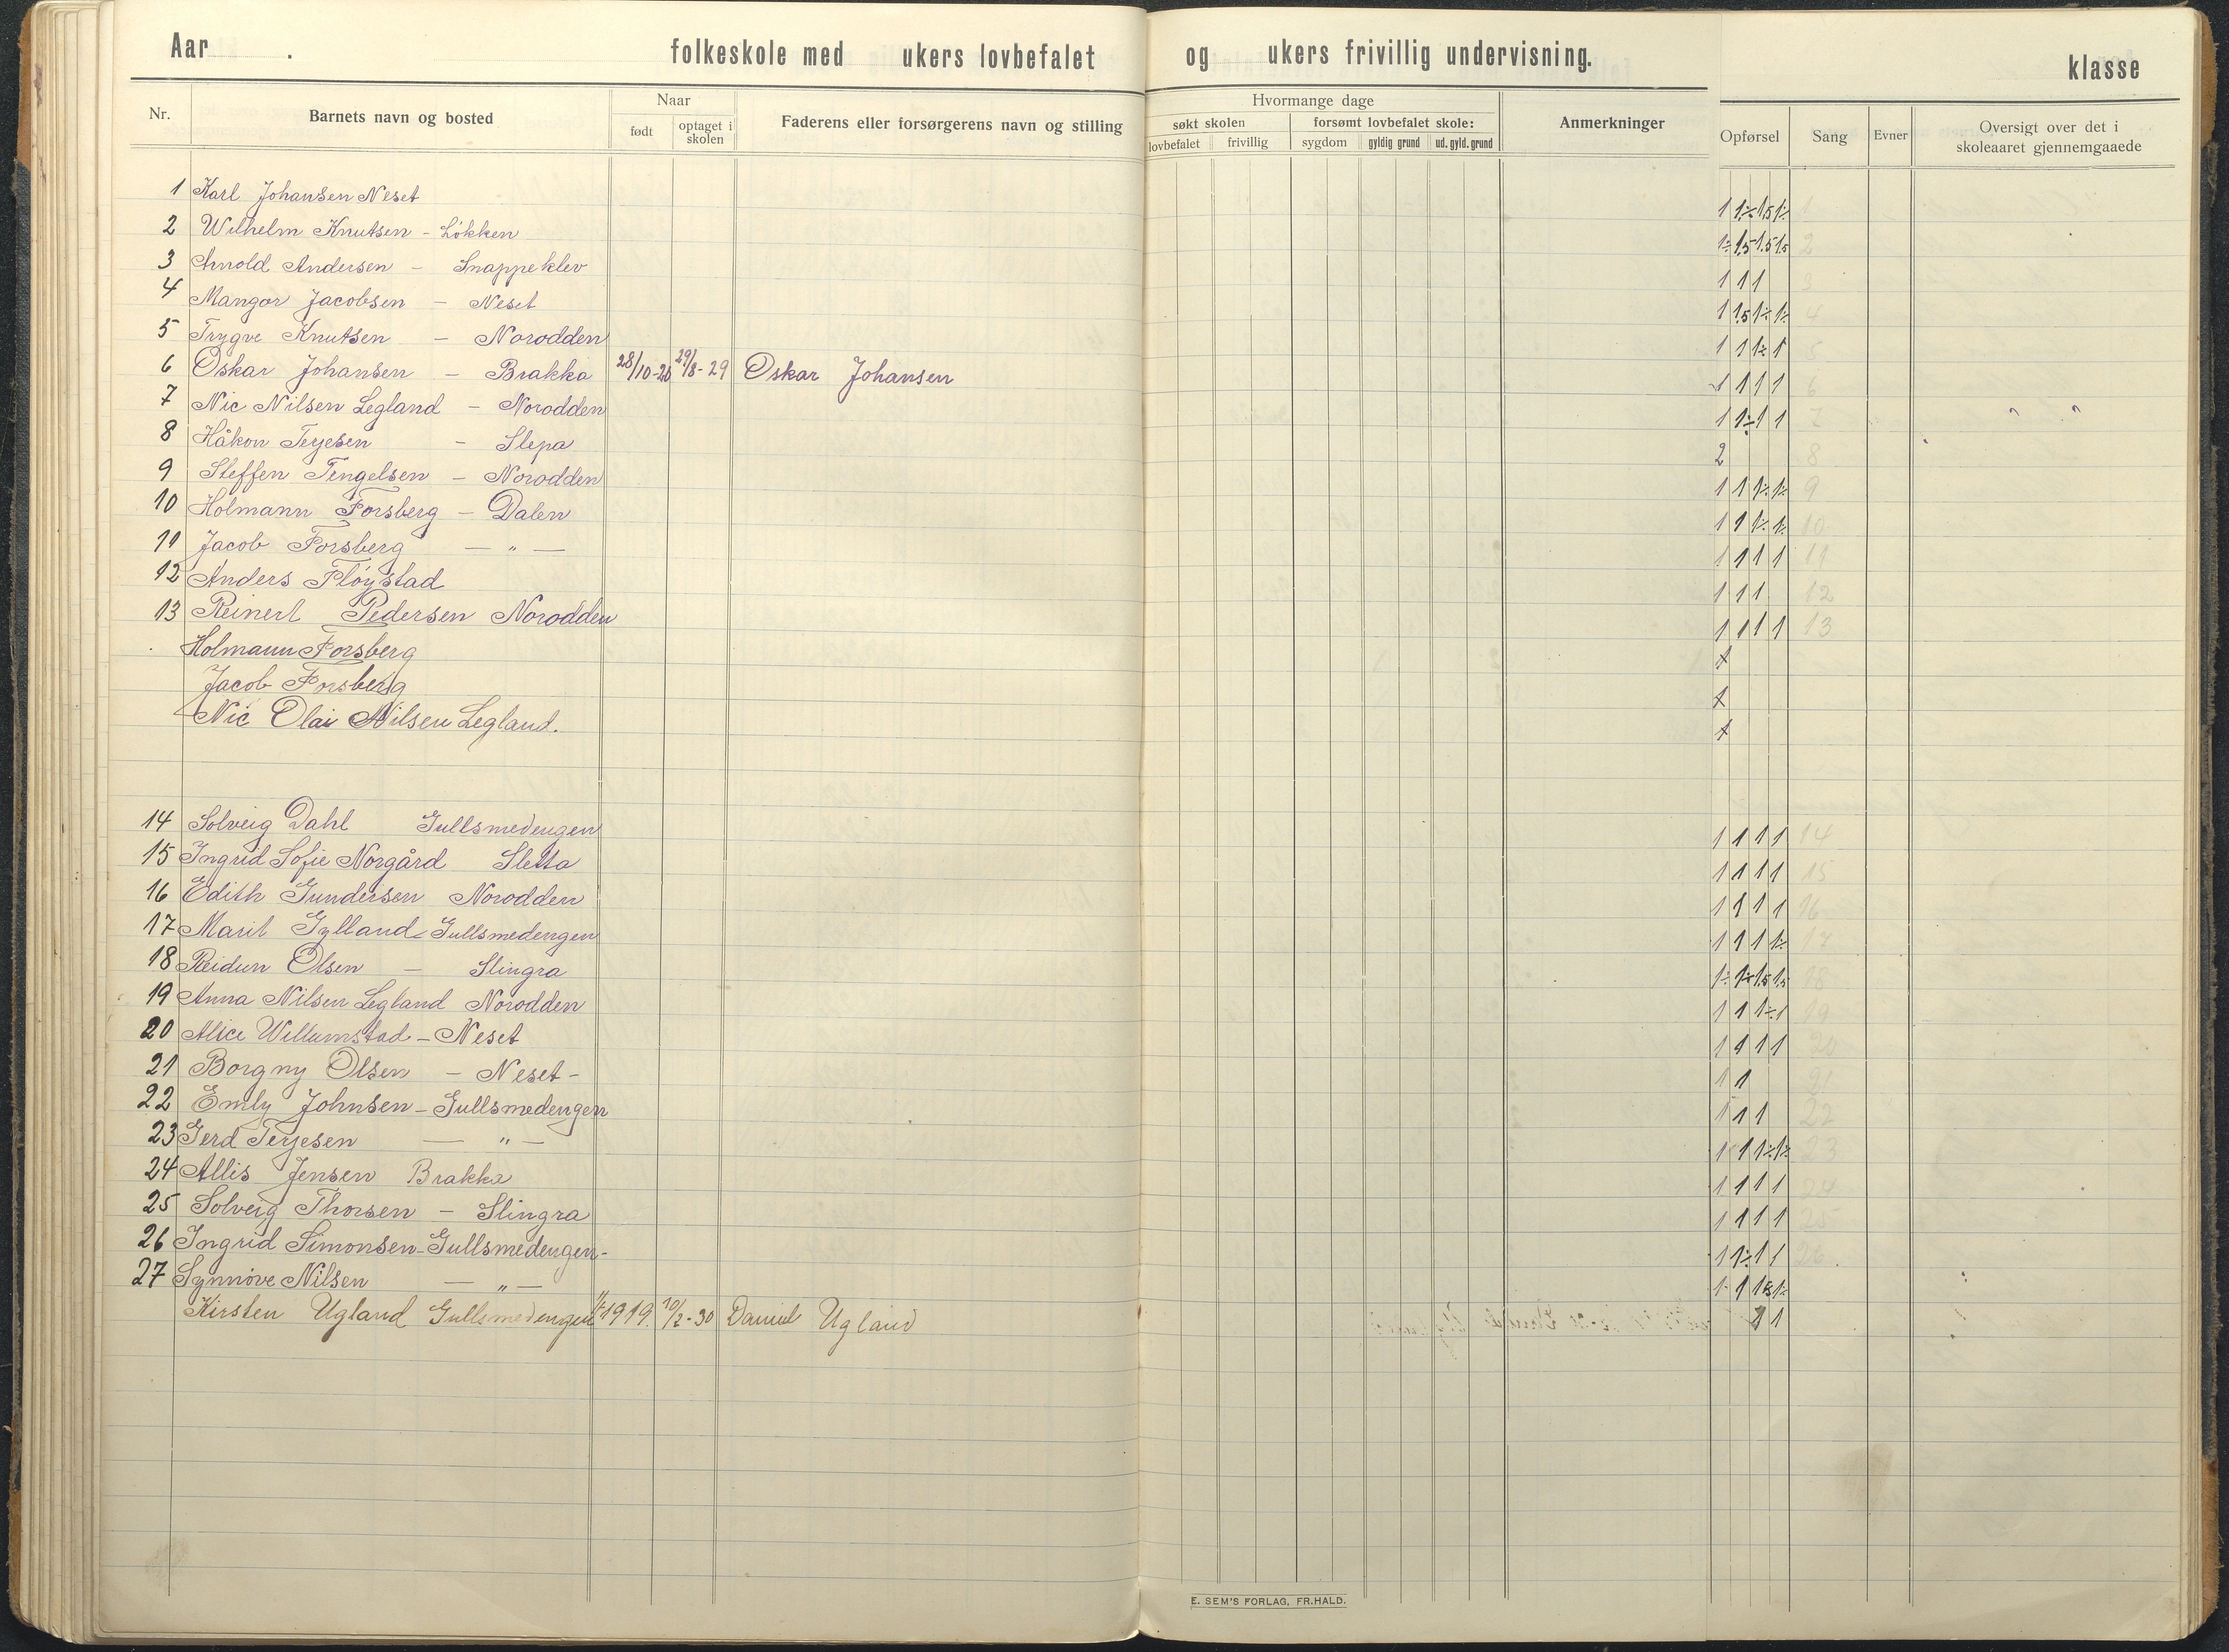 Aar . folkeskole med ukers lovbefalet og ukers frivillig undervisning. klasse
Nr. Barnets navn og bosted Naar Faderens eller forsørgerens navn og stilling Hvormange dage Anmerkninger Opførsel Sang Evner Oversigt over det i skoleaaret gjennemgaaede
født optaget i skolen søkt skolen forsømt lovbefalet skole:
lovbefalet frivillig sygdom gyldig grund ud. gyld. grund
1 Karl Johansen Neset 1 1÷ 1,5 1÷ 1
2 Wilhelm Knutsen - Løkken 1÷ 1,5 1.5 1,5 2
3 Arnold Andersen - Snappeklev 1 1 1 3
4 Mangor Jacobsen - Neset 1 1,5 1÷ 1÷ 4
5 Trygve Knutsen - Norodden 1 1 1÷ 1 5
6 Oskar Johansen - Brakka 28/10-20 29/8-29 Oskar Johansen 1 1 1 1 6
7 Nic Nilsen Legland - Norodden 1 1÷ 1 1 7
8 Håkon Terjesen - Slepa 2 8
9 Steffen Tengelsen - Norodden 1 1 1÷ 1÷ 9
10 Holmann Forsberg - Dalen 1 1 1÷ 1÷ 10
11 Jacob Forsberg — " — 1 1 1 1 11
12 Anders Fløystad 1 1 1 12
13 Reinert Pedersen Norodden 1 1 1 1 13
Holmann Forsberg
Jacob Forsberg
Nic Olai Nilsen Legland.
14 Solveig Dahl Gullsmedengen 1 1 1 1 14
15 Ingrid Sofie Norgård Sletta 1 1 1 1 15
16 Edith Gundersen Norodden 1 1 1 1 16
17 Marit Gylland - Gullsmedengen 1 1 1 1÷ 17
18 Reidun Olsen - Slingra 1÷ 1÷ 1,5 1,5 18
19 Anna Nilsen Legland Norodden 1 1 1÷ 1 19
20 Alice Willumstad - Neset 1 1 1 1 20
21 Borgny Olsen - Neset - 1 1 21
22 Emly Johnsen - Gullsmedengen 1 1 1 22
23 Gerd Terjesen — " — 1 1 1÷ 1÷ 23
24 Allis Jensen Brakka 1 1 1 1 24
25 Solveig Thorsen - Slingra 1 1 1 1 25
26 Ingrid Simonsen - Gullsmedengen - 1 1÷ 1 1 26
27 Synnöve Nilsen — " —
Kirsten Ugland Gullsmedengen 1919. 10/2-30 Daniel Ugland 1 1
E. SEM'S FORLAG, FR.HALD.